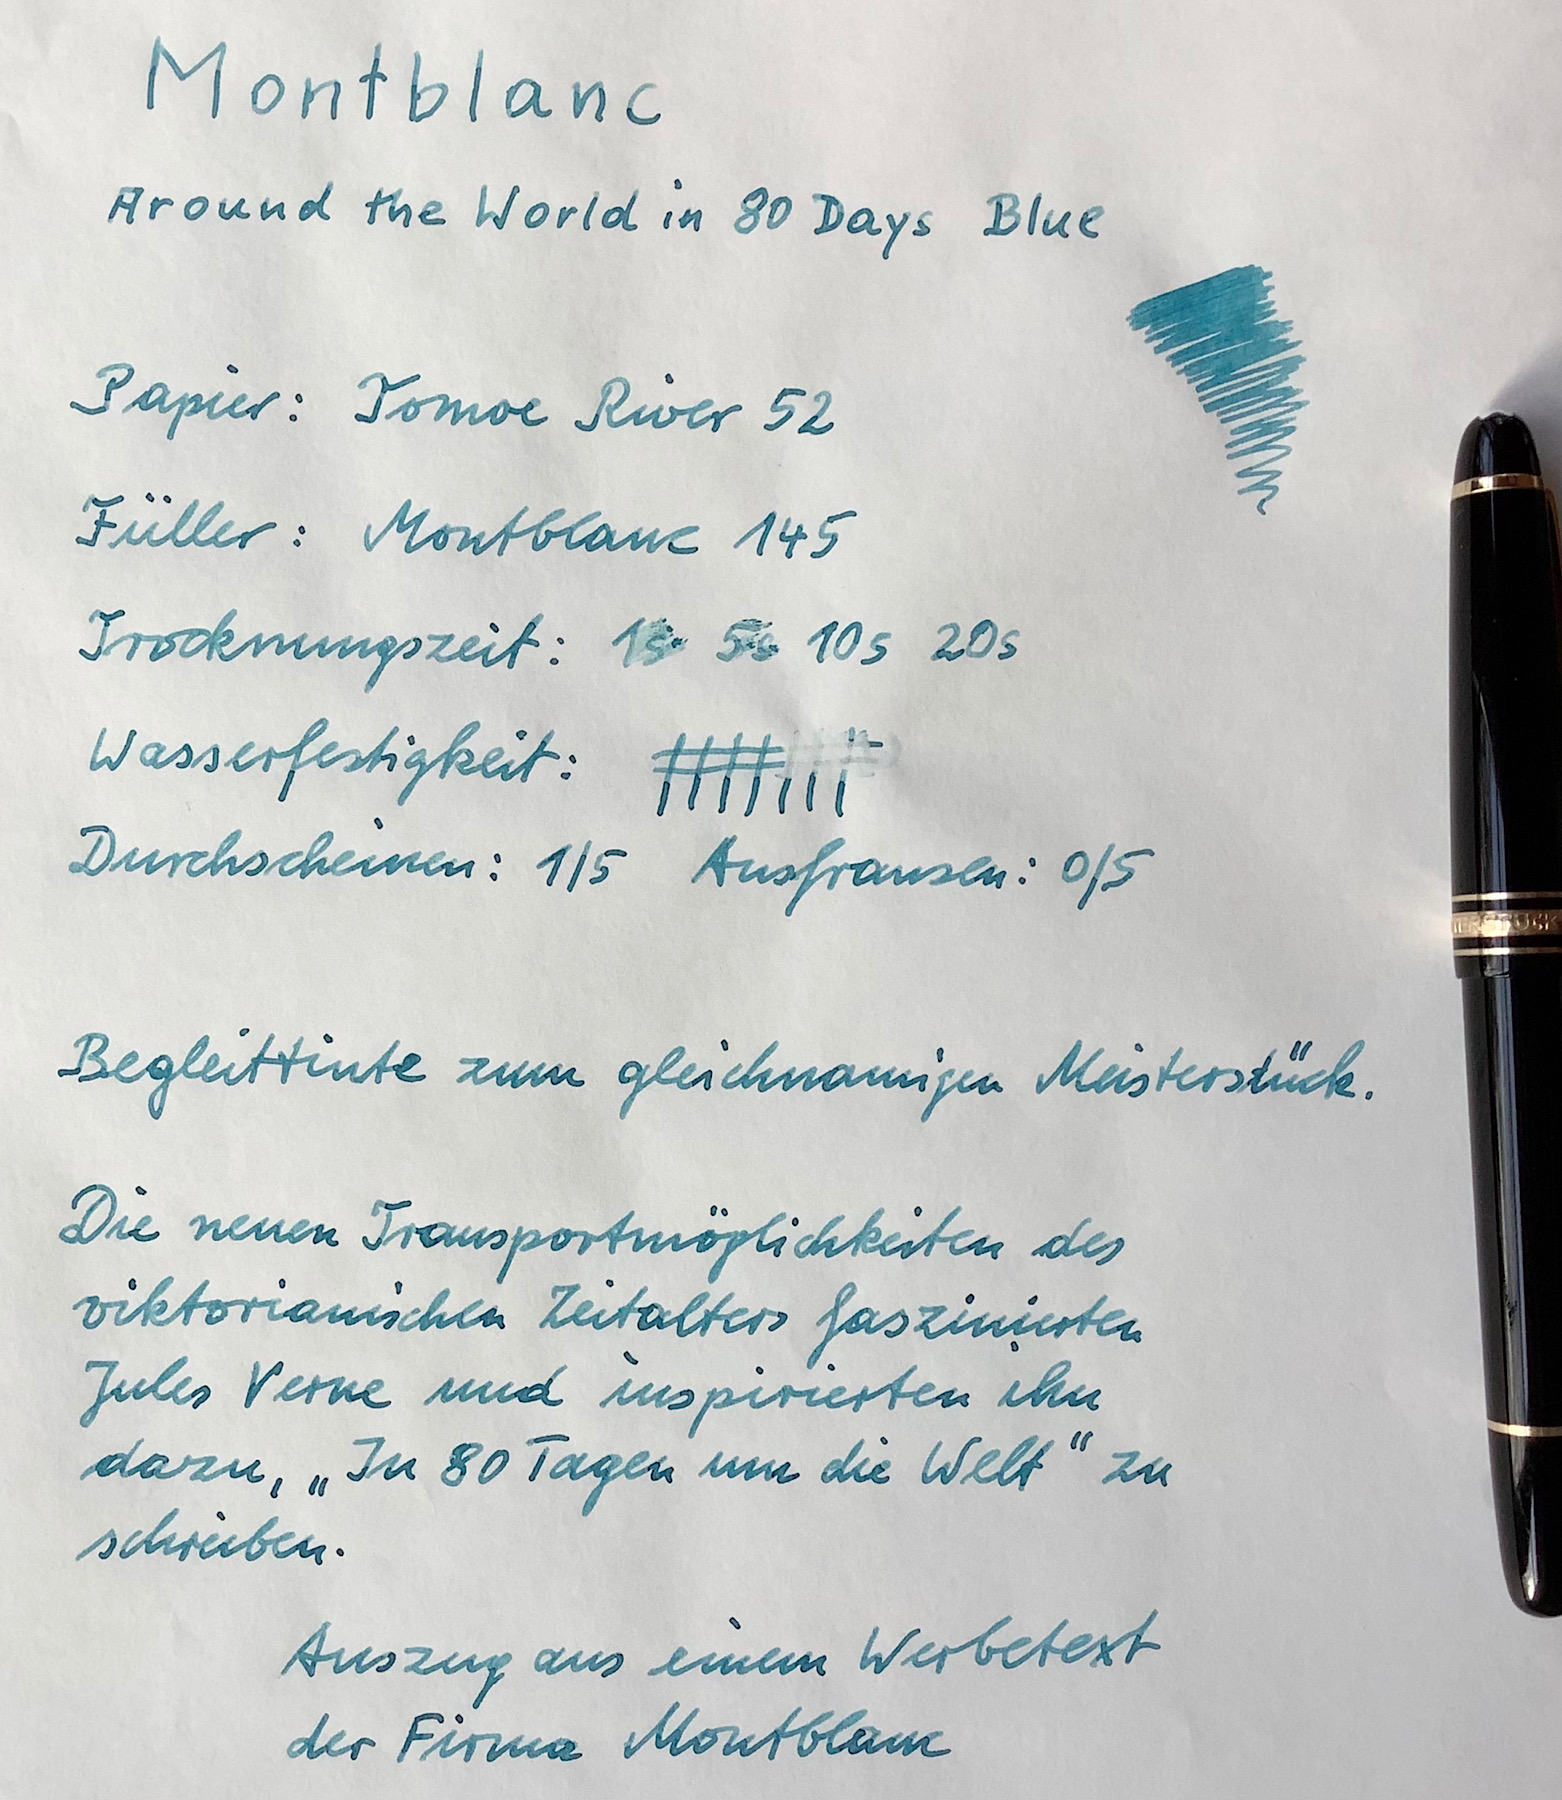 Montblanc
Around the World in 80 Days Blue
Papier: Tomoe River 52
Füller: Montblanc 145
Trocknungszeit: 1s 5s 10s 20s
Wasserfestigkeit:
Durchscheinen: 1/5 Ausfransen: 0/5
Begleittinte zum gleichnamigen Meisterstück.
Die neuen Transportmöglichkeiten des
viktorianischen Zeitalters faszinierten
Jules Verne und inspirierten ihn
dazu, „In 80 Tagen um die Welt“ zu
schreiben.
Auszug aus einem Werbetext
der Firma Montblanc